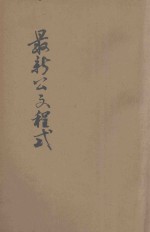 最新公文程式